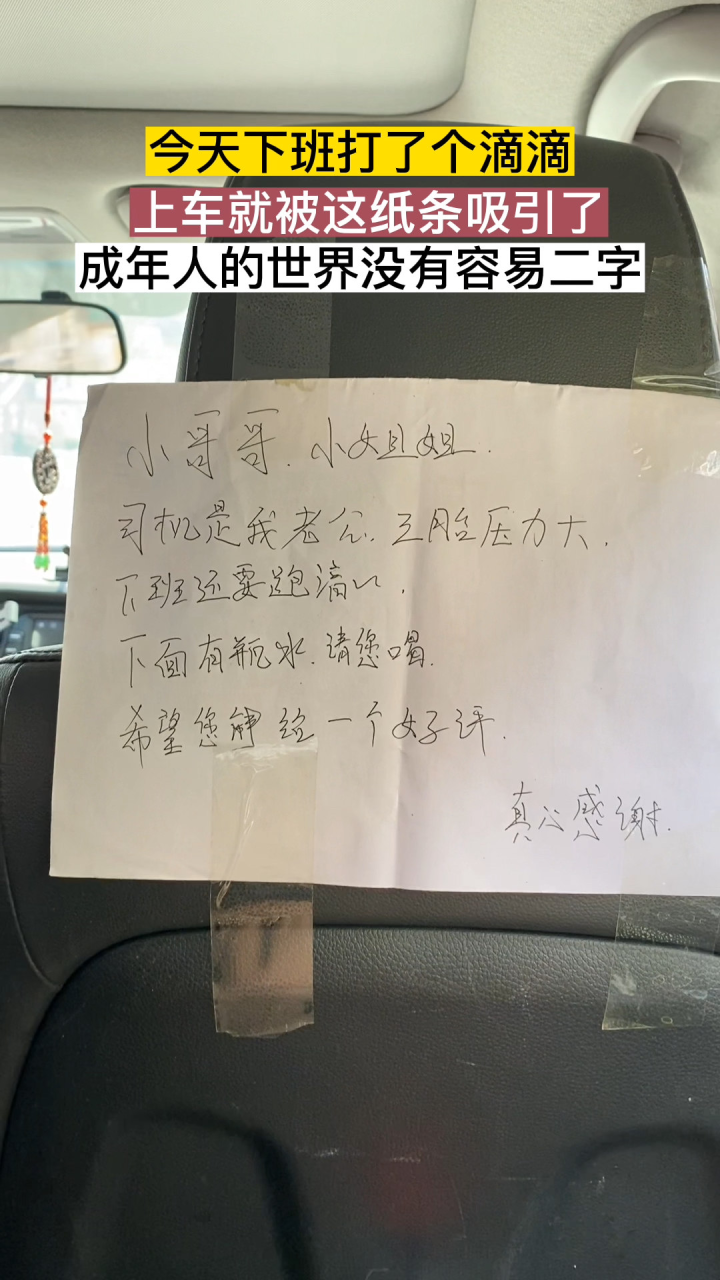 今天下班打了个滴滴
上车就被这纸条吸引了
成年人的世界没有容易二字
小哥哥.小姐姐.
司机是我老公.三胎压力大.
下班还要跑滴滴.
下面有瓶水.请您喝.
希望您能给一个好评.
真心感谢.